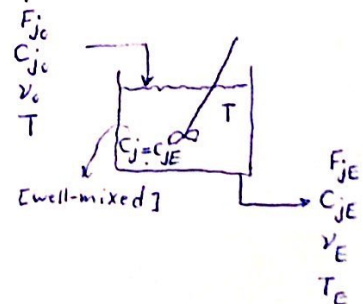 F_j₀
C_j₀
ν₀
T
T
C_j = C_jE
[well-mixed]
F_jE
C_jE
ν_E
T_E